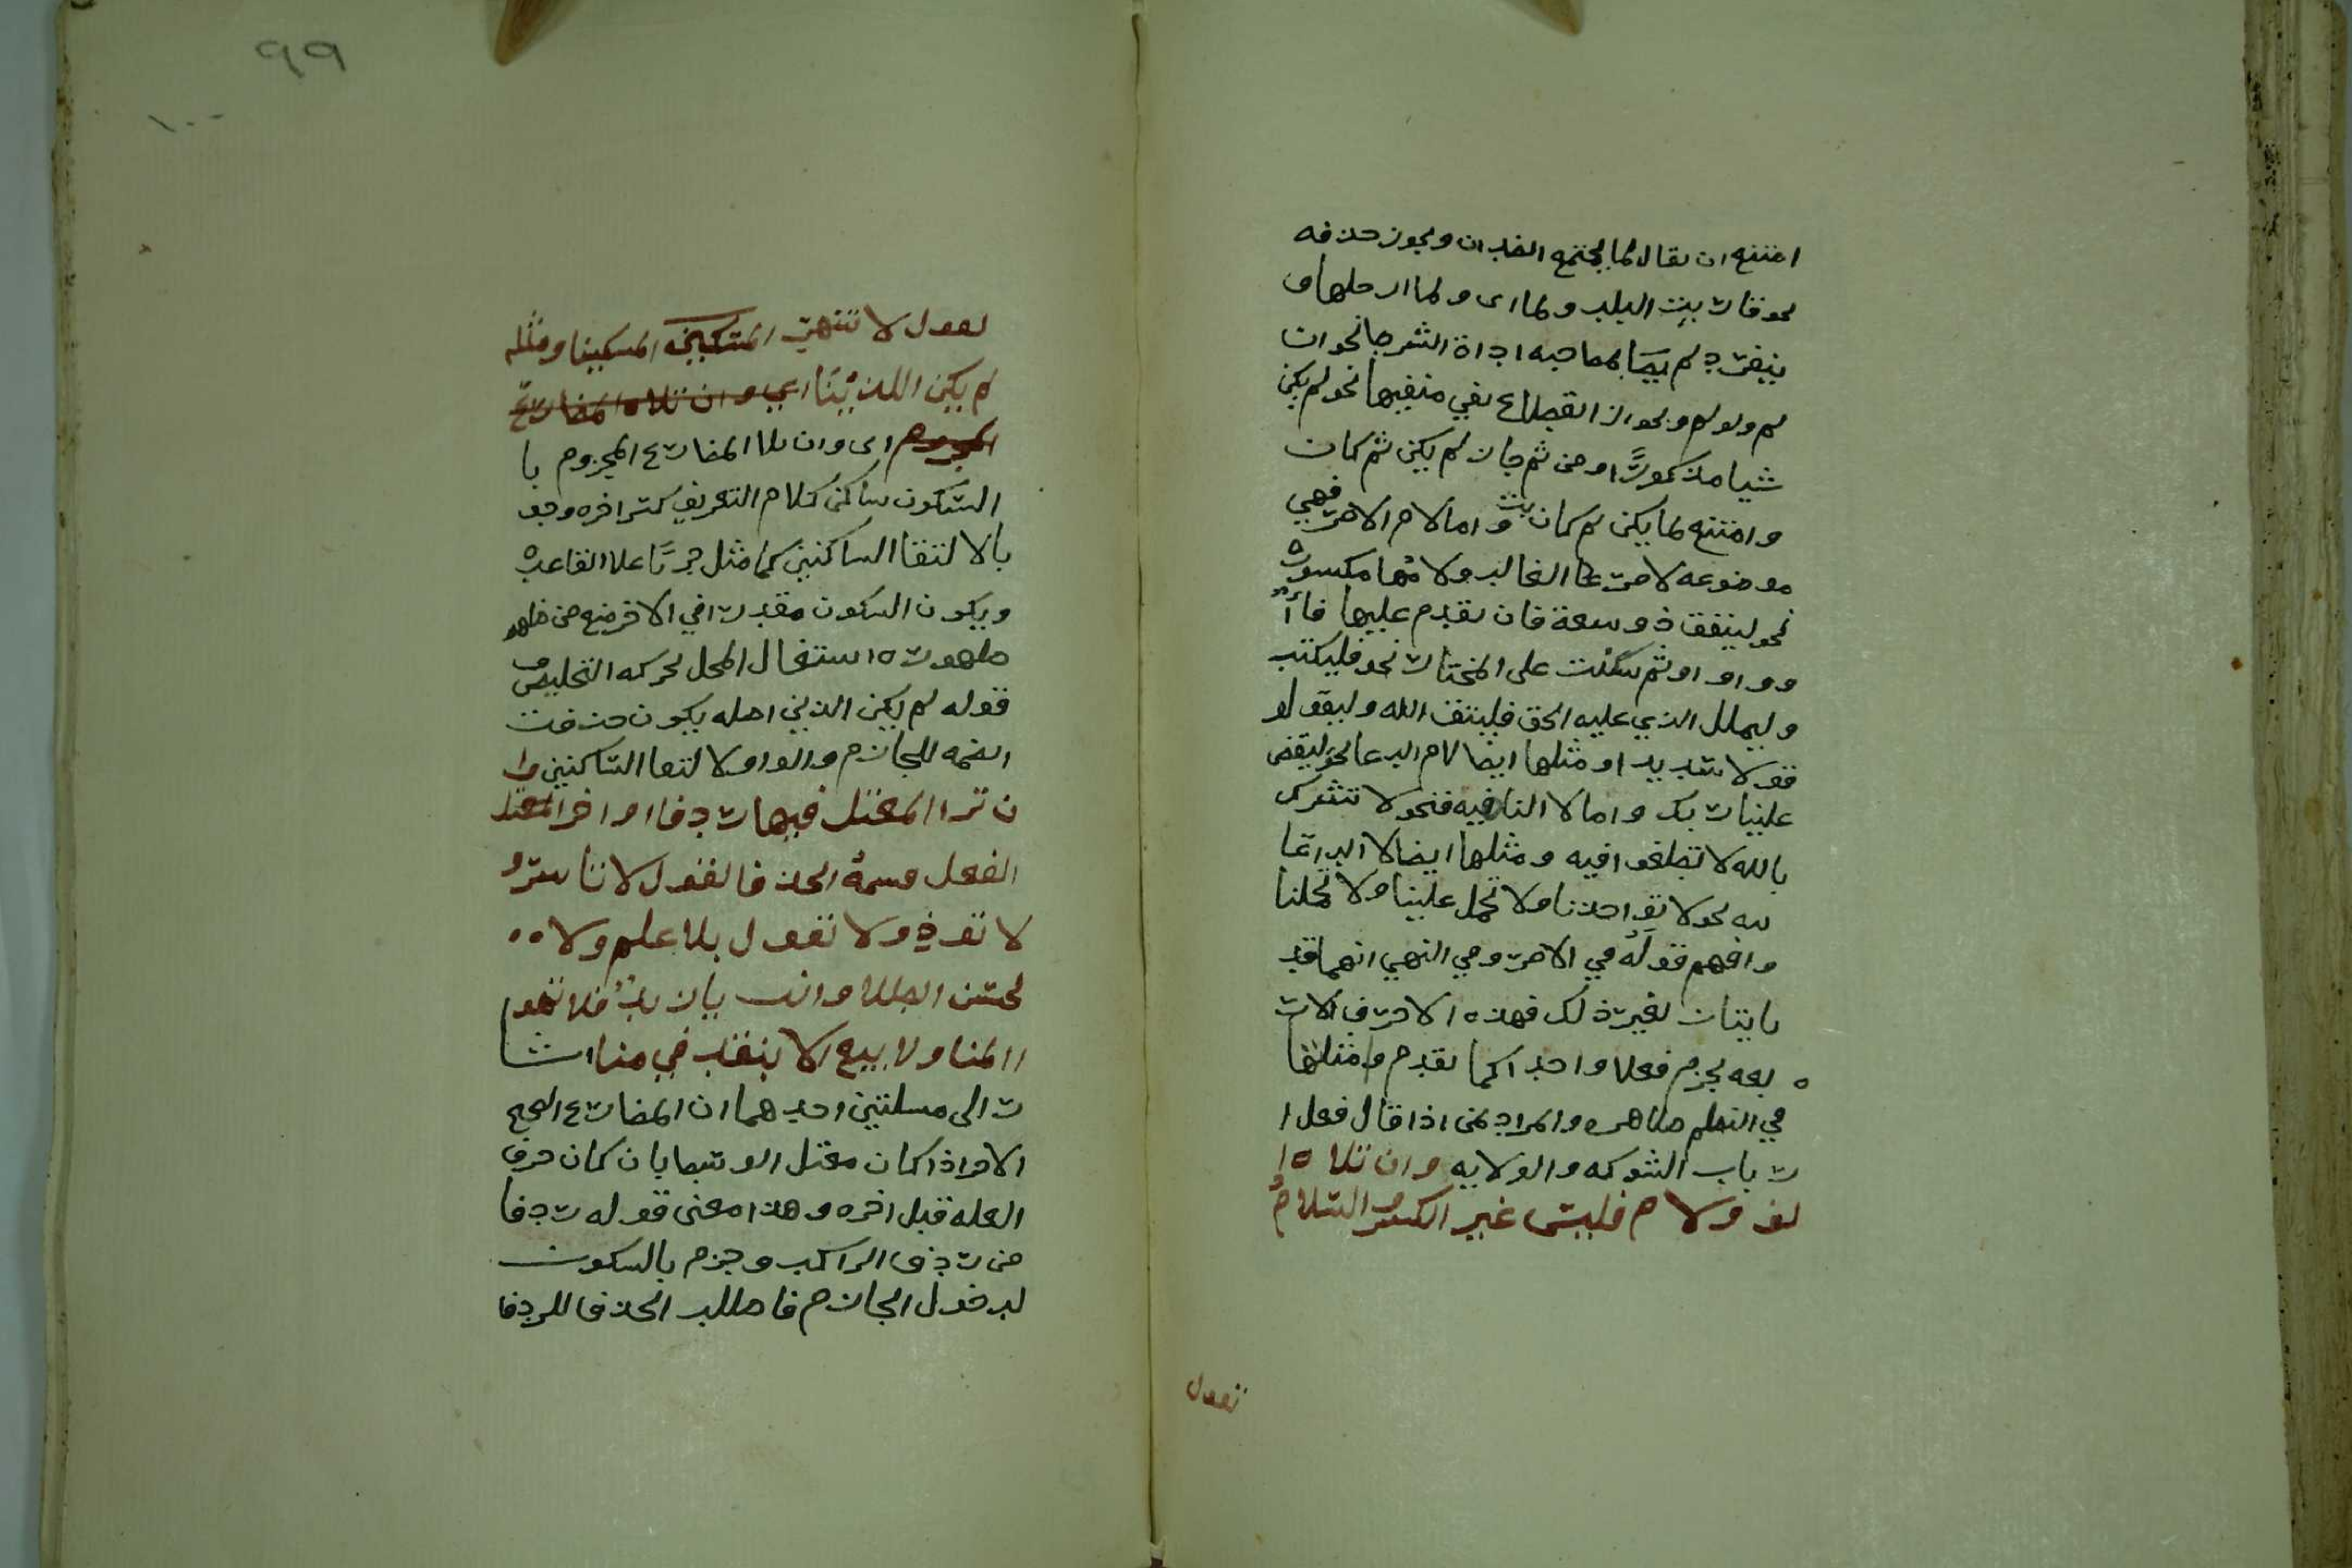 امتنع ان يقال لما يجتمع الضدان ويجوز حذفه
نحو قاربت البلد ولما اى ولما ادخلها و
ينفرد لم بمصاحبه اداة الشرط نحو ان
لم ولو لم وبجواز انقطاع نفي منفيها نحو لم يكن
شيا مذكورًا ومن ثم جاز لم يكن ثم كان
وامتنع لما يكن ثم كان واما لام الامر فهي
موضوعه لامر الغالب ولامها مكسورة
نحو لينفق ذو سعة فان تقدم عليها فاأ
و واو او ثم سكنت على المختار نحو فليكتب
وليملل الذي عليه الحق فليتق الله وليقولو
قولا سديدا ومثلها ايضا لام الدعا نحو ليقض
علينا ربك واما لا الناهيه فنحو لا تشرك
بالله لا تطغوا فيه ومثلها ايضا لا الدعا
ىىه نحو لا تواحذنا ولا تحمل علينا ولا تحملنا
وافهم قوله في الامر وفي النهي انهما قد
ياتيان لغير ذلك فهذه الاحرف الار
بعه يجزم فعلا واحدا كما تقدم وامثلتها
في النظم ظاهره والمراد لمن اذا قال فعل ا
ر باب الشوكه والولايه وان تلاه ا
لف ولام فليس غير الكسر والسلام
تقول
٩٩
١٠٠
تقول لا تنتهر المسكينا ومثله
لم يكن الذينا اي وان تلاه المضارع
المجزوم اى وان تلا المضارع المجزوم با
السكون ساكن كلام التعريف كسر اخره وجو
بالالتقا الساكنين كما مثل جريًا علا القاعدة
ويكون السكون مقدرا في الاخر منع من ظهو
ظهوره اشتغال المحل بحركه التخليص و
قوله لم يكن الذين اصله يكون حذفت
الضمه للجازم والواو لالتقا الساكنين وا
ن ترا المعتل فيها ردفا او اخر المعتل
الفعل وسمهُ الحذفا تقول لا تاسرُ
لا تؤذ ولا تقول بلا علم ولا ٥٥
تحتس الطلا وانت يا زيدُ فلا تهو
االمنا ولا تبع الا بنقد في منا اشا
ر الى مسلتين احدهما ان المضارع الصحيح
الاخر اذا كان معتل الوسط بان كان حرف
العله قبل اخره وهذا معنى قوله ردفا
من ردف الراكب وجزم بالسكون
لدخول الجازم فاطلب الحذف للردفا